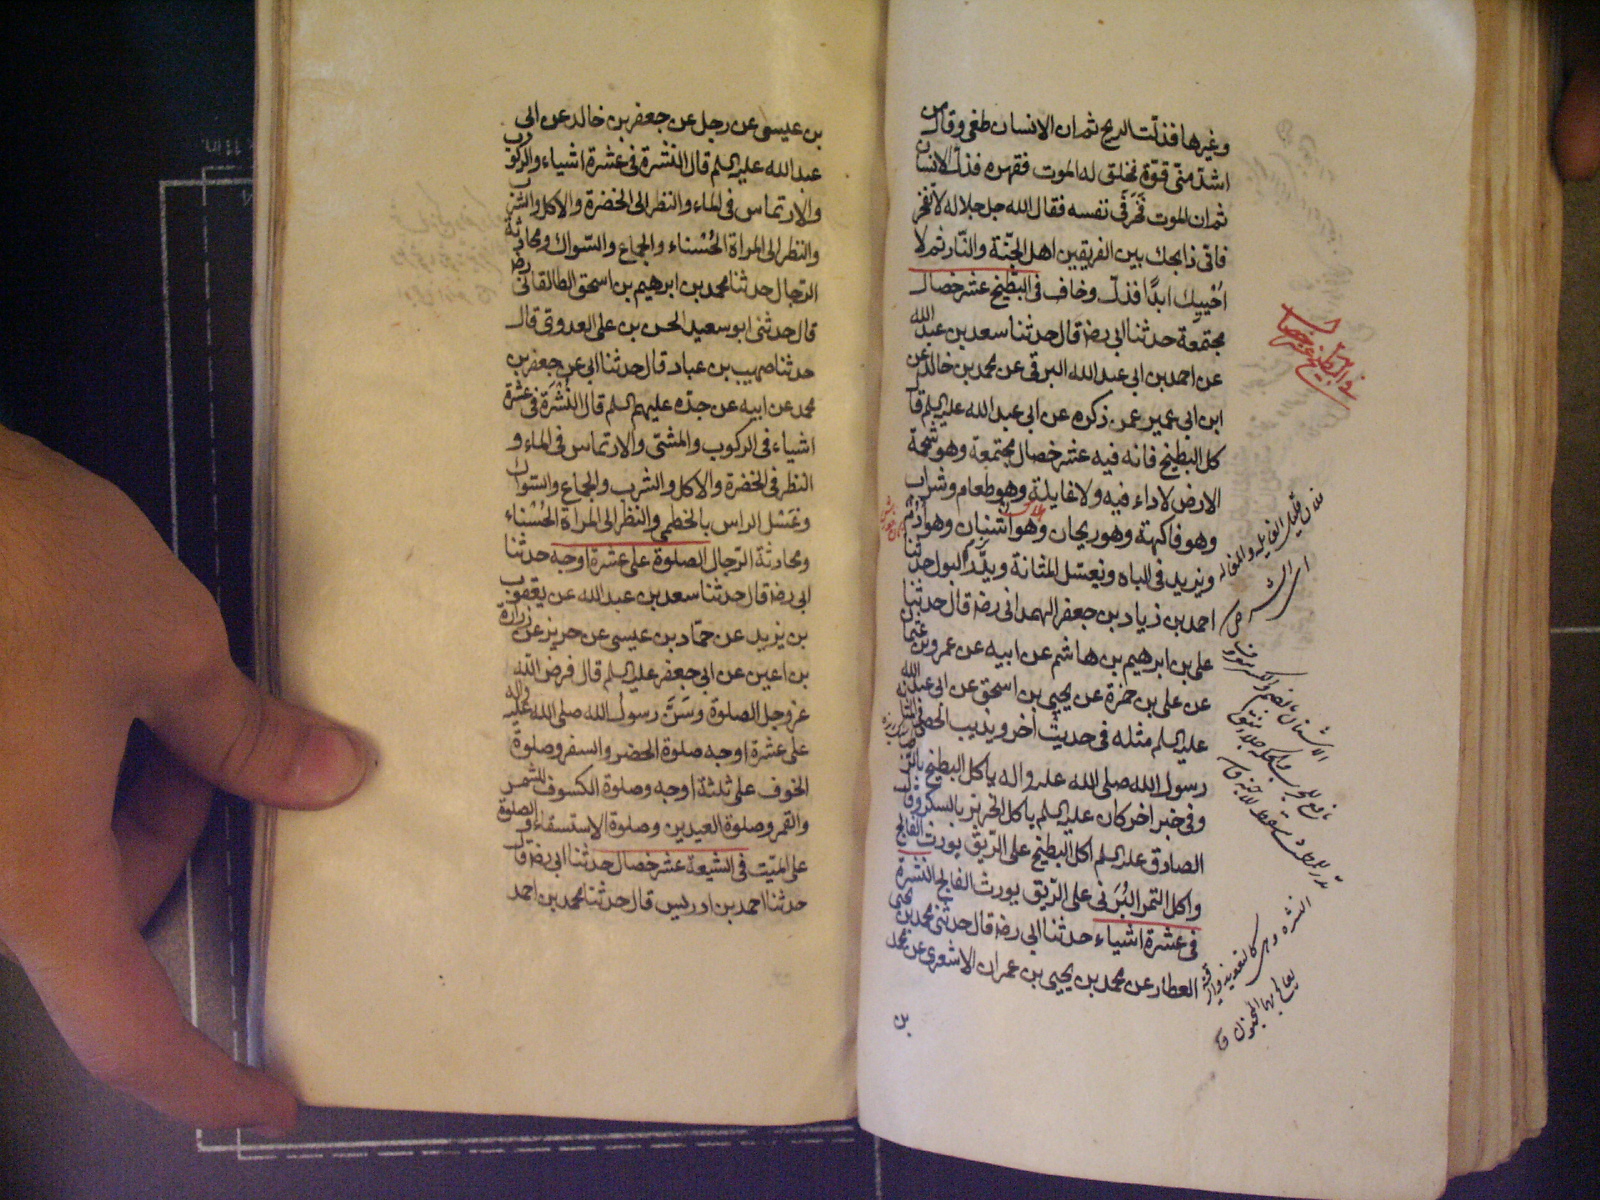 وغيرها فذلت الريح ثم ان الانسان طغى وقال من
اشد منى قوة فخلق له الموت فقهره فذل الانسان
ثم ان الموت فخر فى نفسه فقال الله جل جلاله لا تفخر
فانى ذابحك بين الفريقين اهل الجنة والنار ثم لا
احييك ابدا فذل وخاف فى البطيخ عشر خصال
مجتمعة حدثنا ابى رضه قال حدثنا سعد بن عبد الله
عن احمد بن ابى عبد الله البرقى عن محمد بن خالد عن
ابن ابى عمير عمن ذكره عن ابى عبد الله عليه السلم قال
كل البطيخ فانه فيه عشر خصال مجتمعة وهو شحمة
الارض لا داء فيه ولا غايلة وهو طعام وشراب
وهو فاكهة وهو ريحان وهو اشنان وهو ادم
ويزيد فى الباه ويغسل المثانة ويدر البول حدثنا
احمد بن زياد بن جعفر الهمدانى رضه قال حدثنا
على بن ابرهيم بن هاشم عن ابيه عن عمرو بن عثمان
عن على بن حمزة عن يحيى بن اسحق عن ابى عبد الله
عليه السلم مثله فى حديث اخر ويذيب الحصى فى المثانة
رسول الله صلى الله عليه واله ياكل البطيخ بالتمر
وفى خبر اخر كان عليه السلم ياكل الخربز بالسكر وقال
الصادق عليه السلم اكل البطيخ على الريق يورث الفالج
واكل التمر البرنى على الريق يورث الفالج النشرة
فى عشرة اشياء حدثنا ابى رضه قال حدثنى محمد بن يحيى
العطار عن محمد بن يحيى بن عمران الاشعرى عن محمد
بن
فى البطيخ عشر خصال
بن عيسى عن رجل عن جعفر بن خالد عن ابى
عبد الله عليه السلم قال النشرة فى عشرة اشياء والركوب
والارتماس فى الماء والنظر الى الخضرة والاكل والشرب
والنظر الى المراة الحسناء والجماع والسواك ومحادثة
الرجال حدثنا محمد بن ابرهيم بن اسحق الطالقانى رضه
قال حدثنى ابو سعيد الحسن بن على العدوى قال
حدثنا صهيب بن عباد قال حدثنا ابى عن جعفر بن
محمد عن ابيه عن جده عليهم السلم قال النشرة فى عشرة
اشياء فى الركوب والمشى والارتماس فى الماء و
النظر فى الخضرة والاكل والشرب والجماع والسواك
وغسل الراس بالخطمى والنظر الى المراة الحسناء
ومحادثة الرجال الصلوة على عشرة اوجه حدثنا
ابى رضه قال حدثنا سعد بن عبد الله عن يعقوب
بن يزيد عن حماد بن عيسى عن حريز عن زرارة
بن اعين عن ابى جعفر عليه السلم قال فرض الله
عز وجل الصلوة وسن رسول الله صلى الله عليه واله
على عشرة اوجه صلوة الحضر والسفر وصلوة
الخوف على ثلثة اوجه وصلوة الكسوف للشمس
والقمر وصلوة العيدين وصلوة الاستسقاء والصلوة
على الميت فى الشيعة عشر خصال حدثنا ابى رضه قال
حدثنا احمد بن ادريس قال حدثنا محمد بن احمد